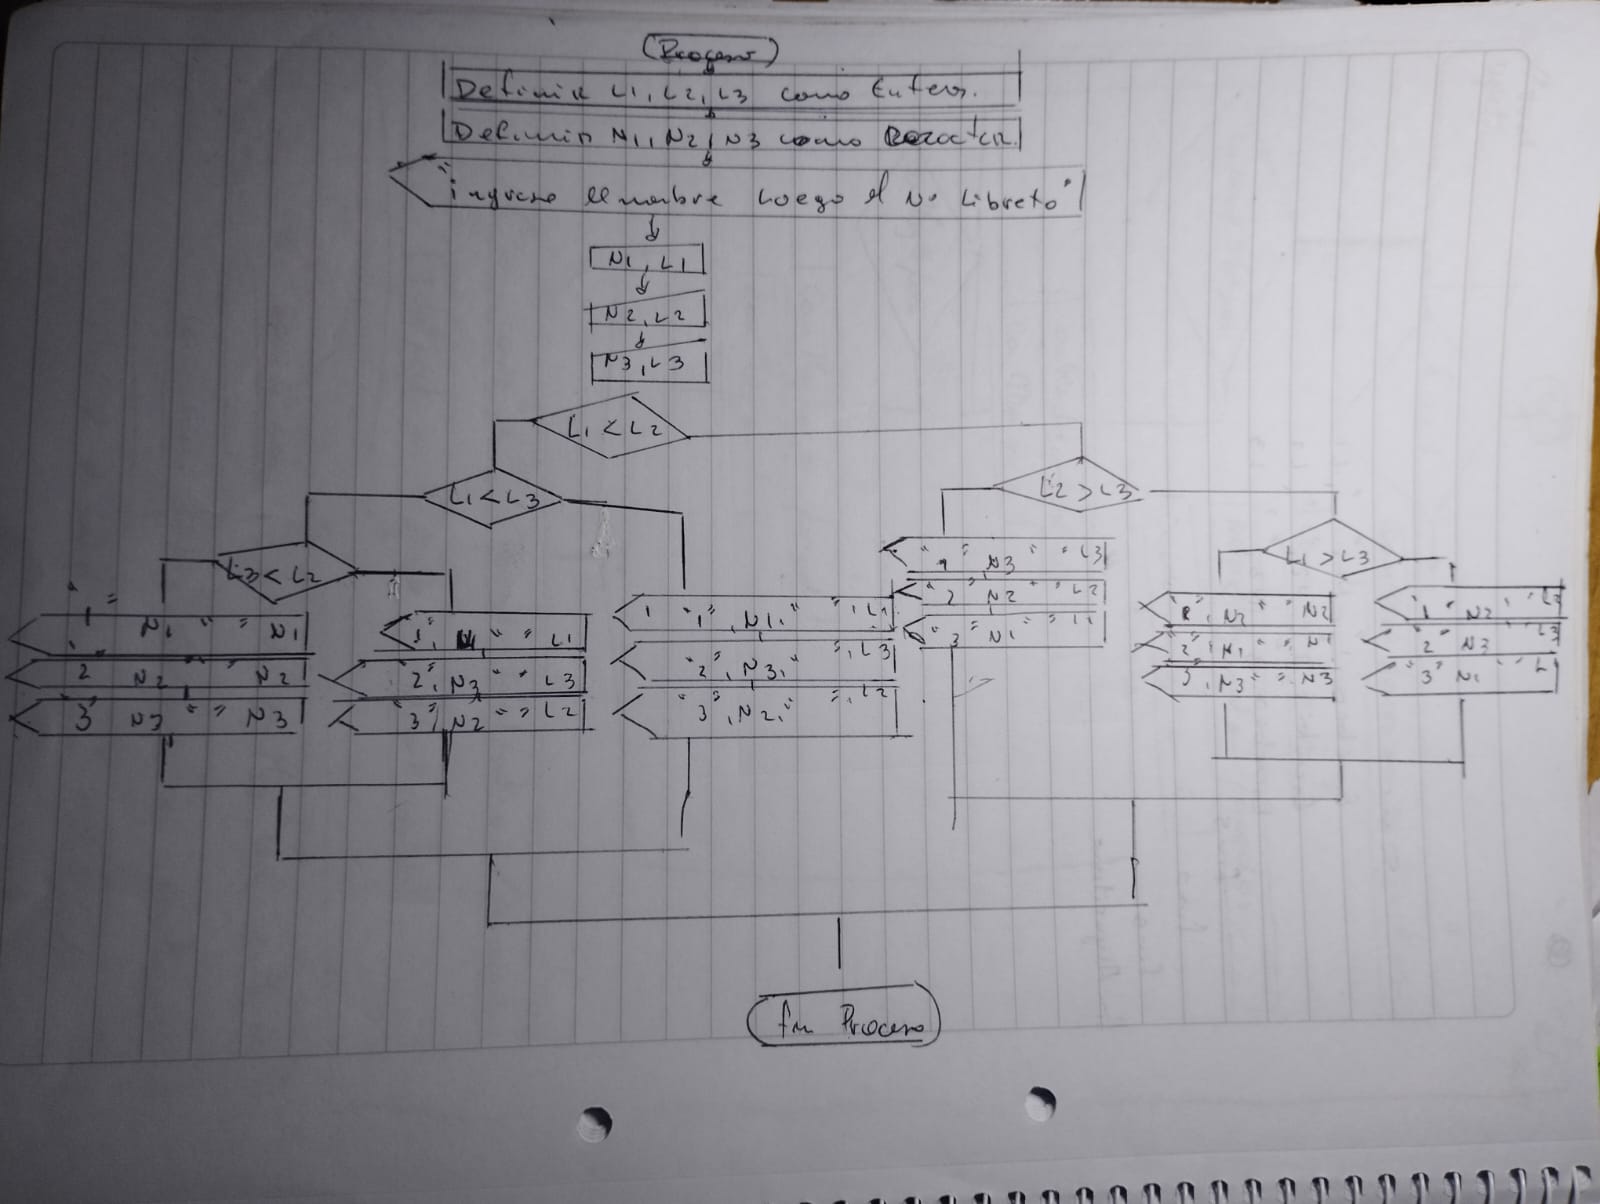 Proceso
Definir L1, L2, L3 como Entero.
Definir N1, N2, N3 como Caracter.
"ingrese el nombre Luego el No Libreto"
N1, L1
N2, L2
N3, L3
L1 < L2
L1 < L3
L2 > L3
L3 < L2
L1 > L3
"1" N1 " " N1
"2" N2 " " N2
"3" N3 " " N3
"1", N1 " " L1
"2", N3 " " L3
"3", N2 " " L2
1 "1", N1, " ", L1
"2", N3, " ", L3
"3", N2, " ", L2
"1" N3 " " L3
"2" N2 " " L2
"3" N1 " " L1
"1", N2 " " N2
"2", N1 " " N1
"3", N3 " " N3
"1" N2 " " L2
"2" N3 " " L3
"3" N1 " " L1
Fin Proceso